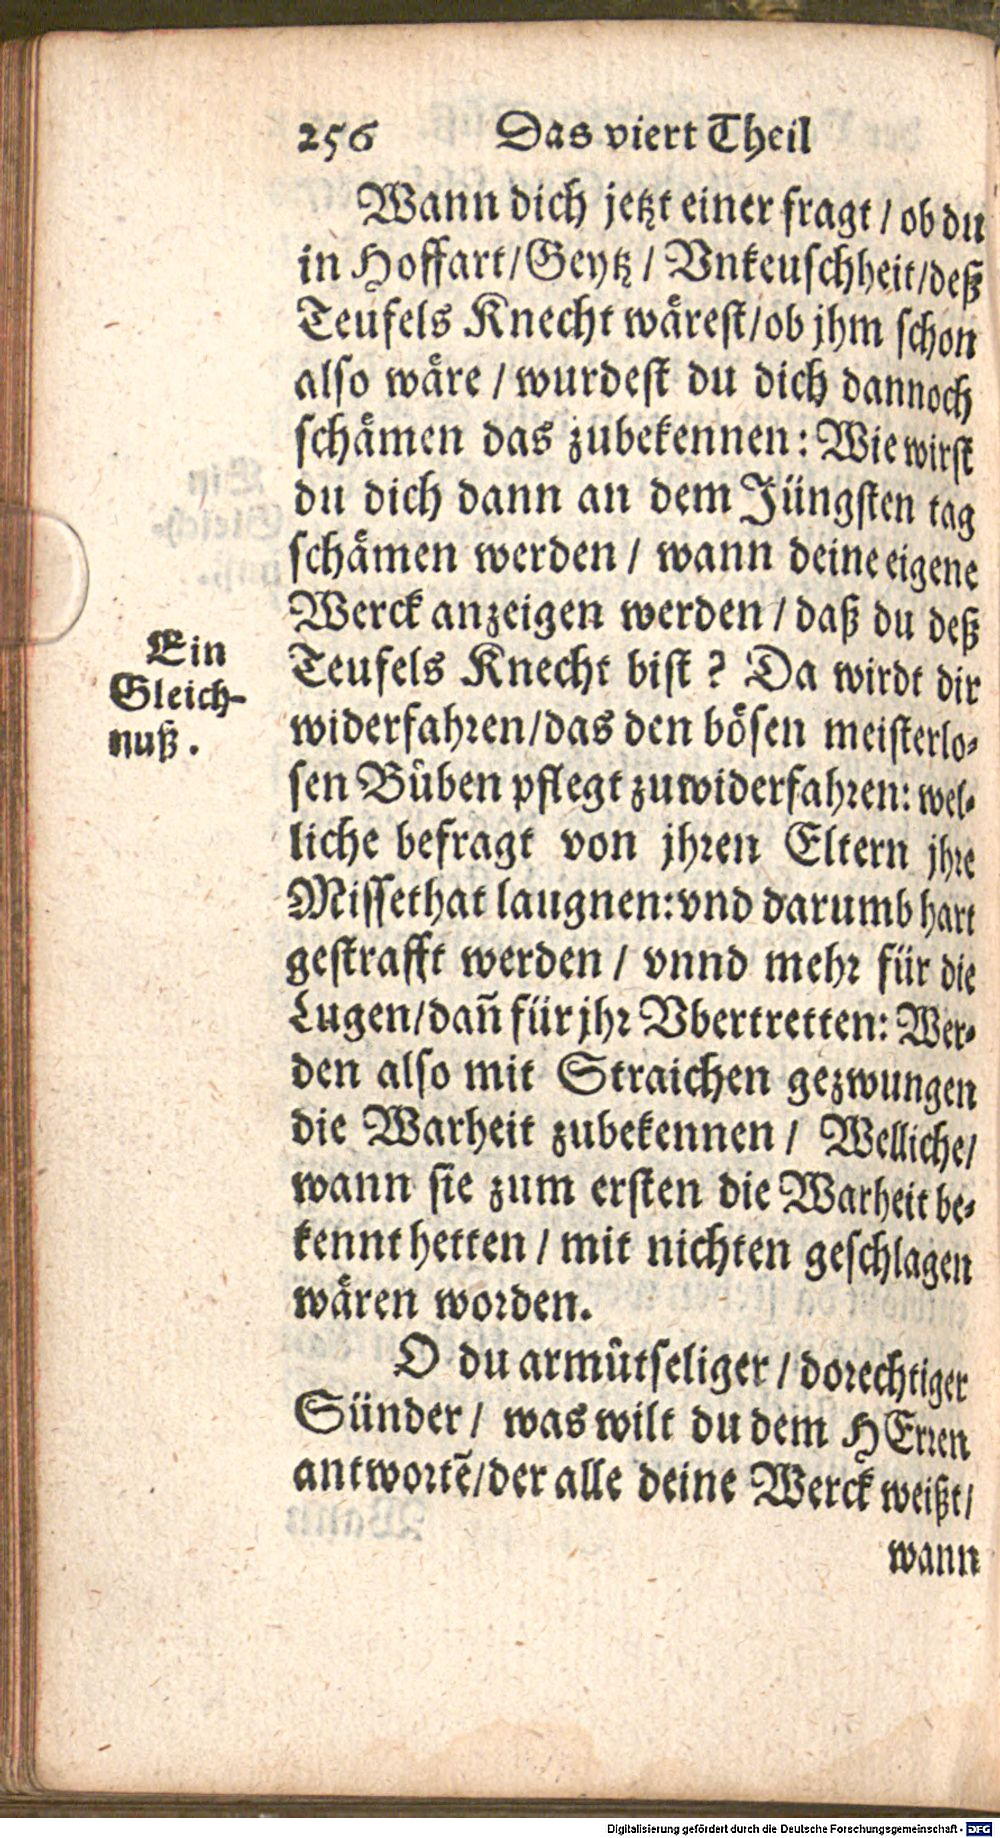 256 Das viert Theil
Wann dich jetzt einer fragt / ob du
in Hoffart / Geytz / Vnkeuschheit / deß
Teufels Knecht wärest / ob jhm schon
also wäre / wurdest du dich dannoch
schämen das zubekennen: Wie wirst
du dich dann an dem Jüngsten tag
schämen werden / wann deine eigene
Werck anzeigen werden / daß du deß
Teufels Knecht bist? Da wirdt dir
widerfahren / das den bösen meisterlo-
sen Bůben pflegt zuwiderfahren: wel-
liche befragt von jhren Eltern jhre
Missethat laugnen: vnd darumb hart
gestrafft werden / vnnd mehr für die
Lugen / dañ für jhr Vbertretten: Wer-
den also mit Straichen gezwungen
die Warheit zubekennen / Welliche /
wann sie zum ersten die Warheit be-
kennt hetten / mit nichten geschlagen
wären worden.
O du armůtseliger / dorechtiger
Sünder / was wilt du dem HErren
antwortẽ / der alle deine Werck weißt /
wann
Ein
Gleich-
nuß.
Digitalisierung gefördert durch die Deutsche Forschungsgemeinschaft - DFG